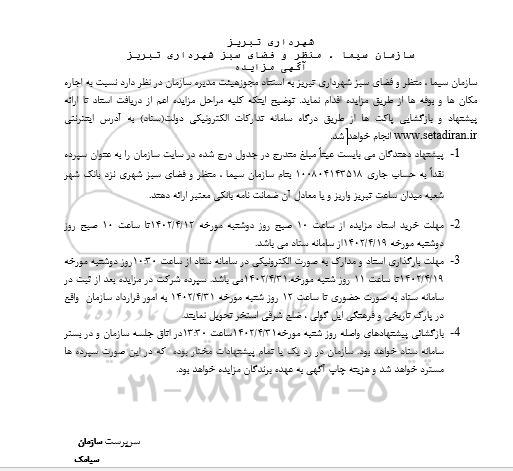 شهرداری تبریز
سازمان سیما ، منظر و فضای سبز شهرداری تبریز
آگهی مزایده
سازمان سیما ، منظر و فضای سبز شهرداری تبریز به استناد مجوزهیئت مدیره سازمان در نظر دارد نسبت به اجاره
مکان ها و بوفه ها از طریق مزایده اقدام نماید. توضیح اینکه کلیه مراحل مزایده اعم از دریافت اسناد تا ارائه
پیشنهاد و بازگشایی پاکت ها از طریق درگاه سامانه تدارکات الکترونیکی دولت(ستاد) به آدرس اینترنتی
www.setadiran.ir انجام خواهد شد.
1- پیشنهاد دهندگان می بایست عیناً مبلغ مندرج در جدول درج شده در سایت سازمان را به عنوان سپرده
نقداً به حساب جاری ۱۰۰۸۰۴۱۴۳۵۱۸ بنام سازمان سیما ، منظر و فضای سبز شهری نزد بانک شهر
شعبه میدان ساعت تبریز واریز و یا معادل آن ضمانت نامه بانکی معتبر ارائه دهند.
2- مهلت خرید اسناد مزایده از ساعت ۱۰ صبح روز دوشنبه مورخه ۱۴۰۲/۴/۱۲تا ساعت ۱۰ صبح روز
دوشنبه مورخه ۱۴۰۲/۴/۱۹از سامانه ستاد می باشد.
3- مهلت بارگذاری اسناد و مدارک به صورت الکترونیکی در سامانه ستاد از ساعت ۱۰:۳۰روز دوشنبه مورخه
۱۴۰۲/۴/۱۹تا ساعت ۱۱ روز شنبه مورخه۱۴۰۲/۴/۳۱می باشد. سپرده شرکت در مزایده بعد از ثبت در
سامانه ستاد به صورت حضوری تا ساعت ۱۲ روز شنبه مورخه ۱۴۰۲/۴/۳۱ به امور قرارداد سازمان واقع
در پارک تاریخی و فرهنگی ایل گولی ، ضلع شرقی استخر تحویل نمایند.
4- بازگشائی پیشنهادهای واصله روز شنبه مورخه۱۴۰۲/۴/۳۱ساعت ۱۳:۳۰در اتاق جلسه سازمان و در بستر
سامانه ستاد خواهد بود. سازمان در رد یک یا تمام پیشنهادات مختار بوده که در این صورت سپرده ها
مسترد خواهد شد و هزینه چاپ آگهی به عهده برندگان مزایده خواهد بود.
۰۲۱-۸۸۳۴۹۶۷۰-۵
سرپرست سازمان
سیامک